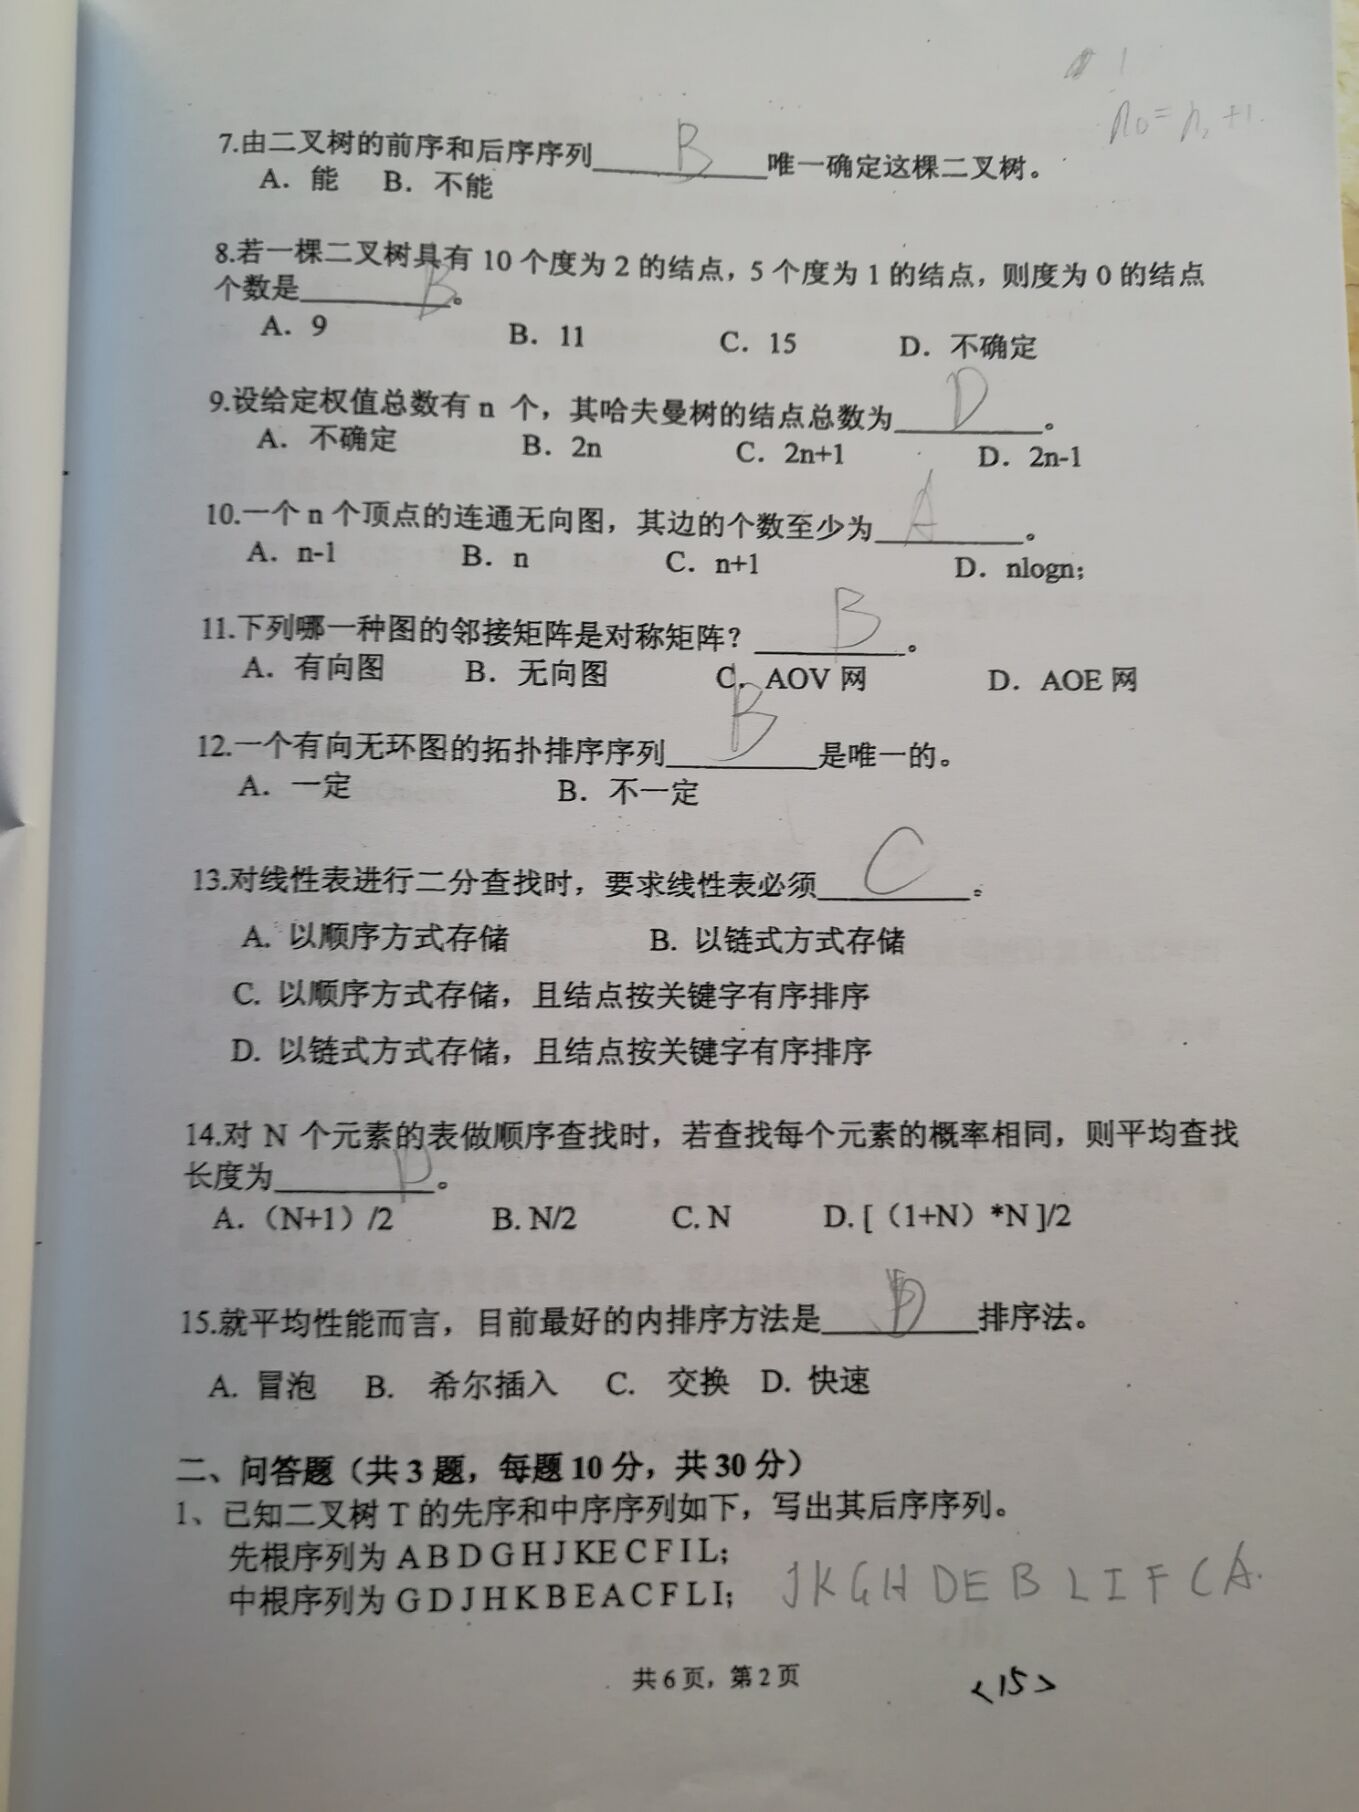 n₀=n₂+1.
7.由二叉树的前序和后序序列 B 唯一确定这棵二叉树。
A. 能 B. 不能
8.若一棵二叉树具有 10 个度为 2 的结点，5 个度为 1 的结点，则度为 0 的结点
个数是 B 。
A. 9 B. 11 C. 15 D. 不确定
9.设给定权值总数有 n 个，其哈夫曼树的结点总数为 D 。
A. 不确定 B. 2n C. 2n+1 D. 2n-1
10.一个 n 个顶点的连通无向图，其边的个数至少为 A 。
A. n-1 B. n C. n+1 D. nlogn;
11.下列哪一种图的邻接矩阵是对称矩阵？ B 。
A. 有向图 B. 无向图 C. AOV 网 D. AOE 网
12.一个有向无环图的拓扑排序序列 B 是唯一的。
A. 一定 B. 不一定
13.对线性表进行二分查找时，要求线性表必须 C 。
A. 以顺序方式存储 B. 以链式方式存储
C. 以顺序方式存储，且结点按关键字有序排序
D. 以链式方式存储，且结点按关键字有序排序
14.对 N 个元素的表做顺序查找时，若查找每个元素的概率相同，则平均查找
长度为 D 。
A.（N+1）/2 B. N/2 C. N D. [（1+N）*N ]/2
15.就平均性能而言，目前最好的内排序方法是 D 排序法。
A. 冒泡 B. 希尔插入 C. 交换 D. 快速
二、问答题（共 3 题，每题 10 分，共 30 分）
1、已知二叉树 T 的先序和中序序列如下，写出其后序序列。
先根序列为 A B D G H J K E C F I L;
中根序列为 G D J H K B E A C F L I; JKGHDEBLIFCA.
共 6 页，第 2 页
<15>